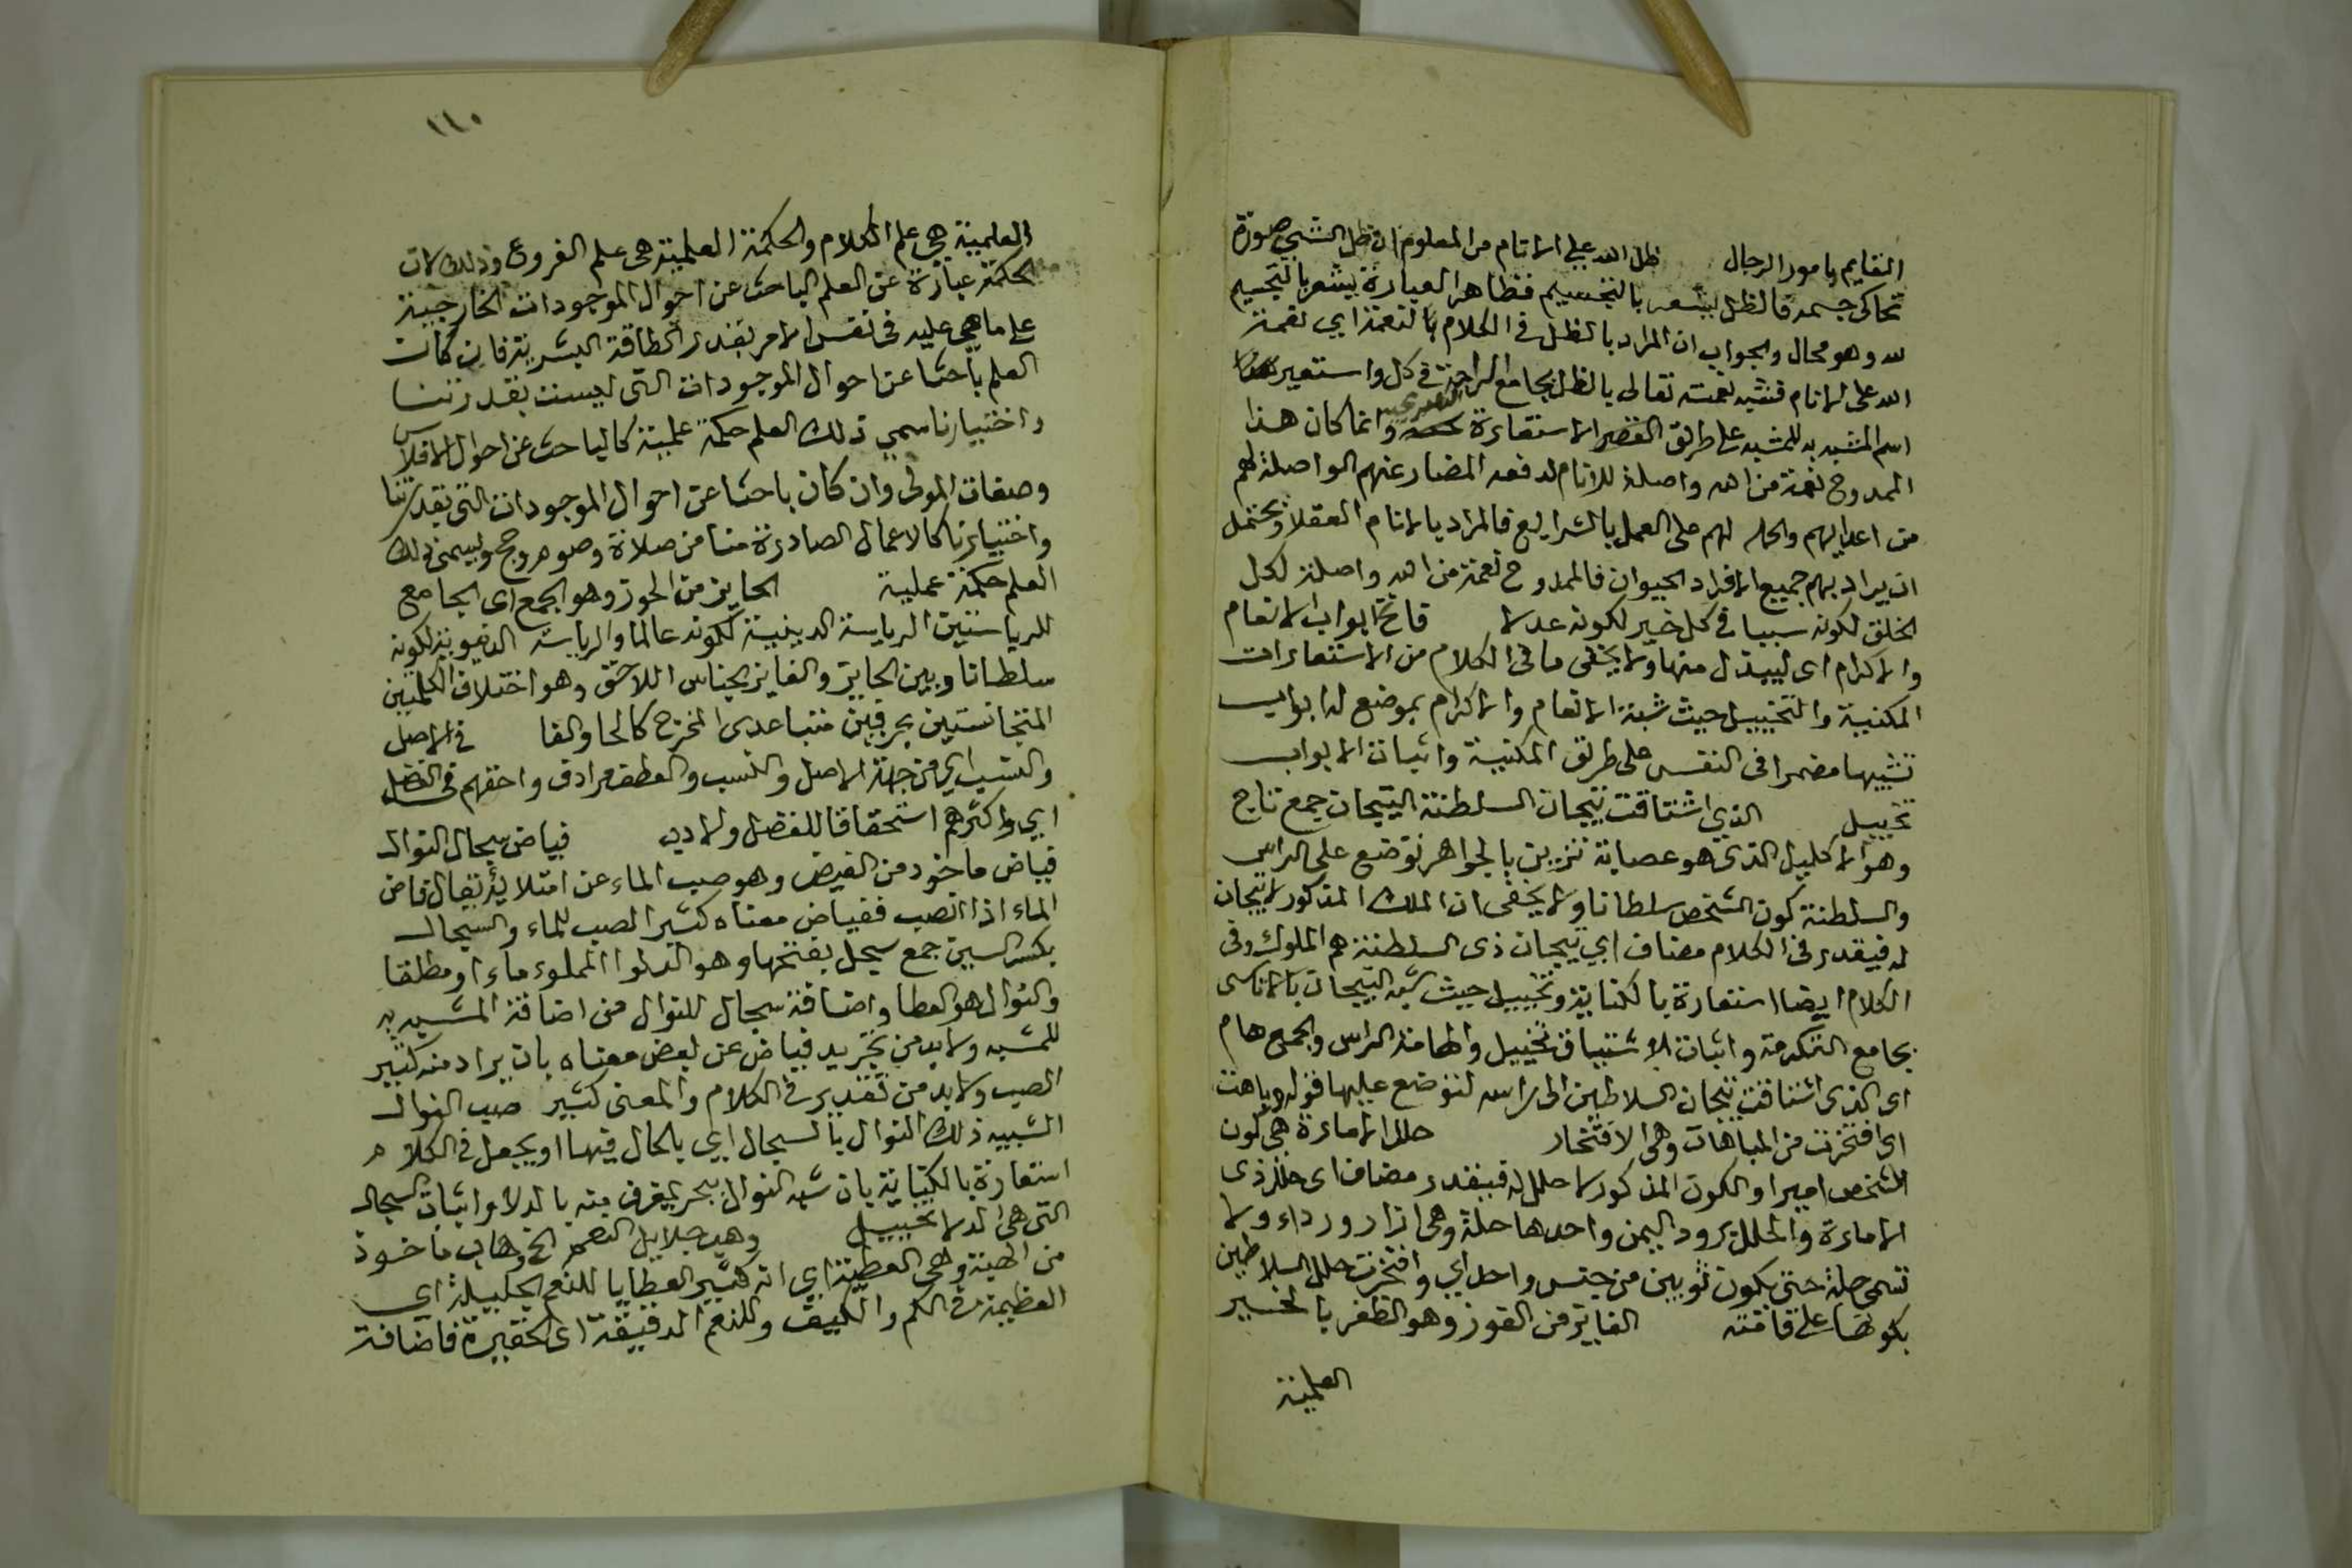 القايم بامور الرجال ظل الله على الانام من المعلوم ان ظل الشيئ صورة
تحاكى جسمه فالظل يشعر بالتجسيم فظاهر العبارة يشعر بالتجسيم
لله وهو محال والجواب ان المراد بالظل في الكلام بالنعمة اي نعمة
الله على الانام فشبه نعمته تعالى بالظل بجامع الراحة في كل واستعير
اسم المشبه به للمشبه على طريق الاستعارة التصريحيه وانما كان هذا
الممدوح نعمة من الله واصلة للانام لدفعه المضار عنهم الواصلة لهم
من اعدايهم والحمله لهم على العمل بالشرايع فالمراد بالانام العقلا ويحتمل
ان يراد بهم جميع الافراد الحيوان فالممدوح نعمة من الله واصلة لكل
الخلق لكونه سببا في كل خير لكونه عدلا فاتح ابواب الانعام
والاكرام اى ليبذل منها ولا يخفى ما في الكلام من الاستعارات
المكنية والتخييل حيث شبه الانعام والاكرام بموضع له ابواب
تشبيها مضمرا في النفس على طريق المكنية واثبات الابواب
تخييل الذي اشتاقت تيجان السلطنة التيجان جمع تاج
وهو الاكليل الذي هو عصابة تزين بالجواهر توضع على الراس
والسلطنة كون الشخص سلطانا ولا يخفى ان الملك المذكور لا تيجان
له فيقدر في الكلام مضاف اي تيجان ذى السلطنة هم الملوك وفي
الكلام ايضا استعارة بالكناية وتخييل حيث شبه التيجان باناسى
بجامع التكرمة واثبات الاشتياق تخييل والهامة الراس والجمع هام
اى الذى اشتاقت تيجان السلاطين الى راسه لتوضع عليها قوله وباهت
اى افتخرت من المباهات وهى الافتخار حلل الامارة هي كون
الشخص اميرا والكون المذكور لا حلل له فيقدر مضاف اى حلل ذى
الامارة والحلل برود اليمن واحدها حلة وهى ازار ورداء ولا
تسمى حلة حتى يكون ثوبين من جنس واحد اي وافتخرت حلل السلاطين
بكونها على قامته الفايز من الفوز وهو الظفر بالخير
العلمية
١١٠
العلمية هي علم الكلام والحكمة العملية هى علم الفروع وذلك لان
الحكمة عبارة عن العلم الباحث عن احوال الموجودات الخارجية
على ما هي عليه في نفس الامر بقدر الطاقة البشرية فان كان
العلم باحثا عن احوال الموجودات التى ليست بقدرتنا
واختيارنا سمي ذلك العلم حكمة علمية كالباحث عن احوال الافلاك
وصفات المولى وان كان باحثا عن احوال الموجودات التى بقدرتنا
واختيارنا كالاعمال الصادرة منا من صلاة وصوم وحج ويسمى ذلك
العلم حكمة عملية الحايز من الحوز وهو الجمع اى الجامع
للرياستين الرياسة الدينية لكونه عالما والرياسة الدنيوية لكونه
سلطانا وبين الحايز والفايز الجناس اللاحق وهو اختلاف الكلمتين
المتجانستين بحرفين متباعدى المخرج كالحا والفا في الاصل
والنسب اي من جهة الاصل والنسب والعطف مرادف واحقهم في الفضل
اي واكثرهم استحقاقا للفضل والادب فياض سجال النوال
فياض ماخوذ من الفيض وهو صب الماء عن امتلا يقال فاض
الماء اذا انصب ففياض معناه كثير الصب للماء والسجال
بكسر السين جمع سجل بفتحها وهو الدلو المملوء ماءا ومطلقا
والنوال هو العطا واضافة سجال للنوال من اضافة المشبه به
للمشبه ولا بد من تجريد فياض عن بعض معناه بان يراد منه كثير
الصب ولا بد من تقدير في الكلام والمعنى كثير صب النوال
الشبيه ذلك النوال بالسجال اي بالحال فيها او يجعل في الكلام
استعارة بالكناية بان شبه النوال ببحر يغرف منه بالدلا واثبات السجال
التى هى الدلا تخييل وهب جلايل النعم الخ وهاب ماخوذ
من الهبة وهي العطية اي انه كثير العطايا للنعم الجليلة اي
العظيمة في الكم والكيف وللنعم الدقيقة اى الحقيرة فاضافة